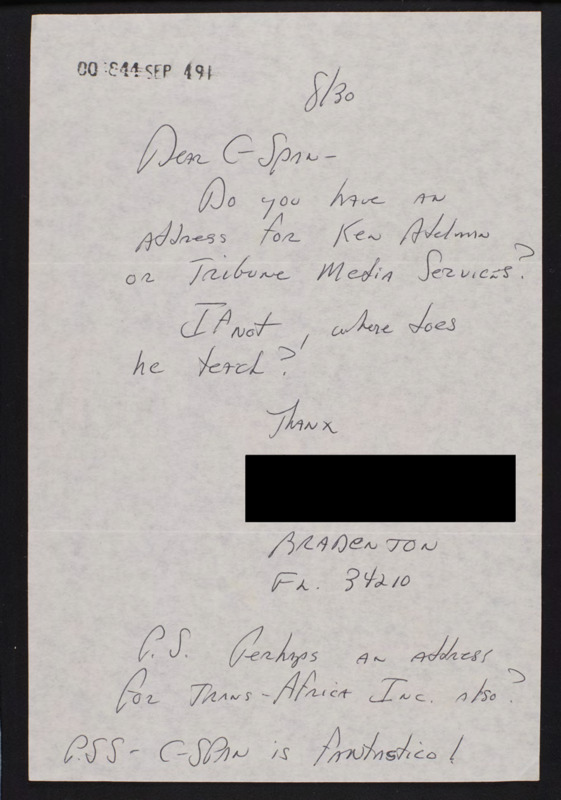 00 844 SEP 491
8/30
Dear C-Span-
Do you have an
address for Ken Adelman
or Tribune Media Services?
If not, where does
he teach?
Thanx
BRADENTON
FL. 34210
P.S. Perhaps an address
for Trans-Africa Inc. also?
P.SS- C-SPAN is fantastico!